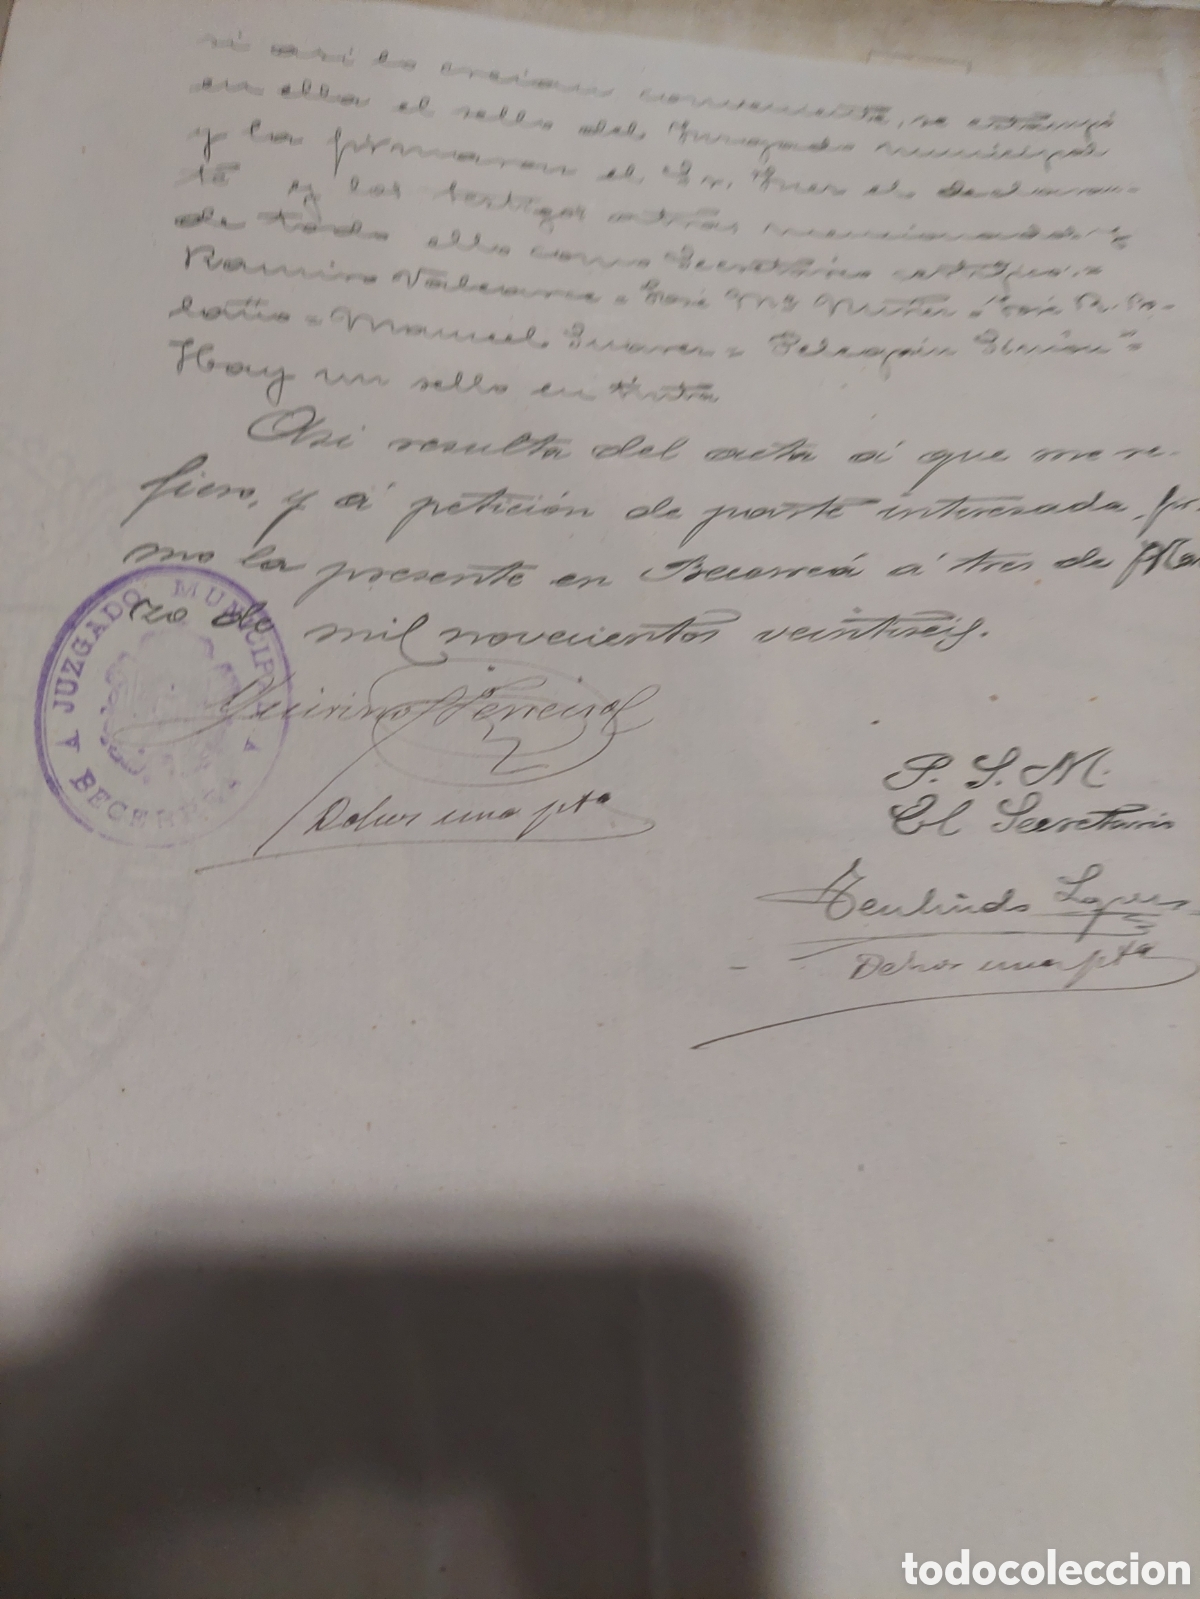 si asi lo creian conveniente, se estampó
en ella el sello del Juzgado municipal
y la firmaron el Sr. Juez el declaran-
te y los testigos antes mencionados y
de todo ello como Secretario certifico.=
Ramiro Valcarce = José Mª Núñez = José R. Ba-
laño = Manuel Suarez =
Hay un sello en tinta
Asi resulta del acta á que me re-
fiero, y á petición de parte interesada, fir-
mo la presente en Becerreá á tres de Mar-
zo de mil novecientos veintiseis.
JUZGADO MUNICIPAL
BECERREA
Quirino Ferreiro
Dchos una pta
P. S. M.
El Secretario
Lopez
Dchos una pta
todocoleccion